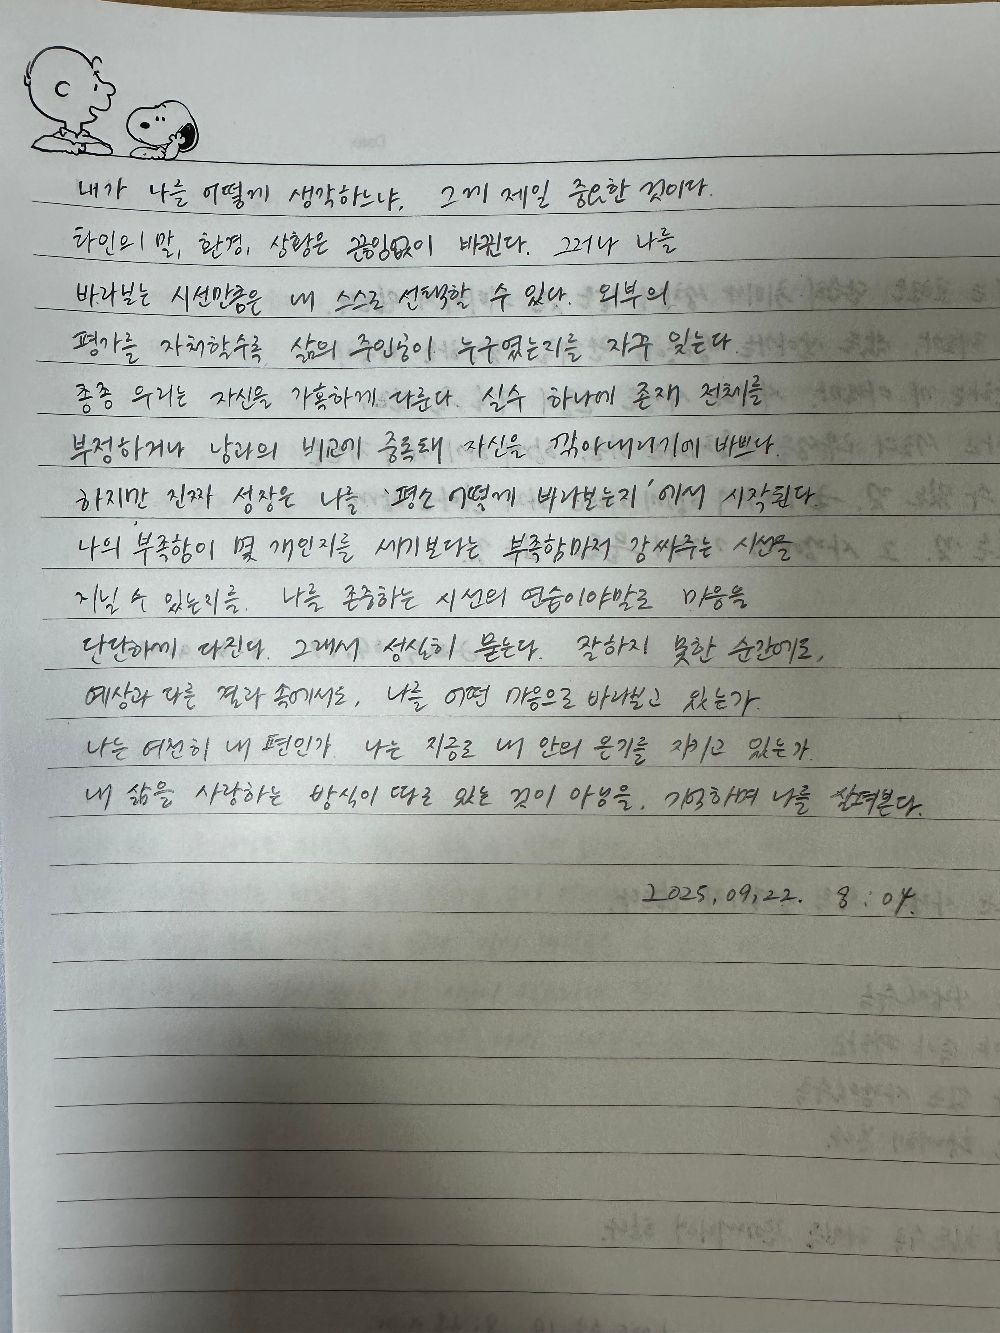 내가 나를 어떻게 생각하느냐, 그게 제일 중요한 것이다.
타인의 말, 환경, 상황은 끊임없이 바뀐다. 그러나 나를
바라보는 시선만큼은 내 스스로 선택할 수 있다. 외부의
평가를 자처할수록 삶의 주인공이 누구였는지를 자꾸 잊는다.
종종 우리는 자신을 가혹하게 다룬다. 실수 하나에 존재 전체를
부정하거나 남과의 비교에 중독돼 자신을 깎아내리기에 바쁘다.
하지만 진짜 성장은 나를 '평소 어떻게 바라보는지'에서 시작된다.
나의 부족함이 몇 개인지를 세기보다는 부족함마저 감싸주는 시선을
지닐 수 있는지를. 나를 존중하는 시선의 연습이야말로 마음을
단단하게 다진다. 그래서 성실히 묻는다. 잘하지 못한 순간에도,
예상과 다른 결과 속에서도, 나를 어떤 마음으로 바라보고 있는가.
나는 여전히 내 편인가. 나는 지금도 내 안의 온기를 지키고 있는가.
내 삶을 사랑하는 방식이 따로 있는 것이 아님을. 기억하며 나를 살펴본다.
2025.09.22. 8:04.